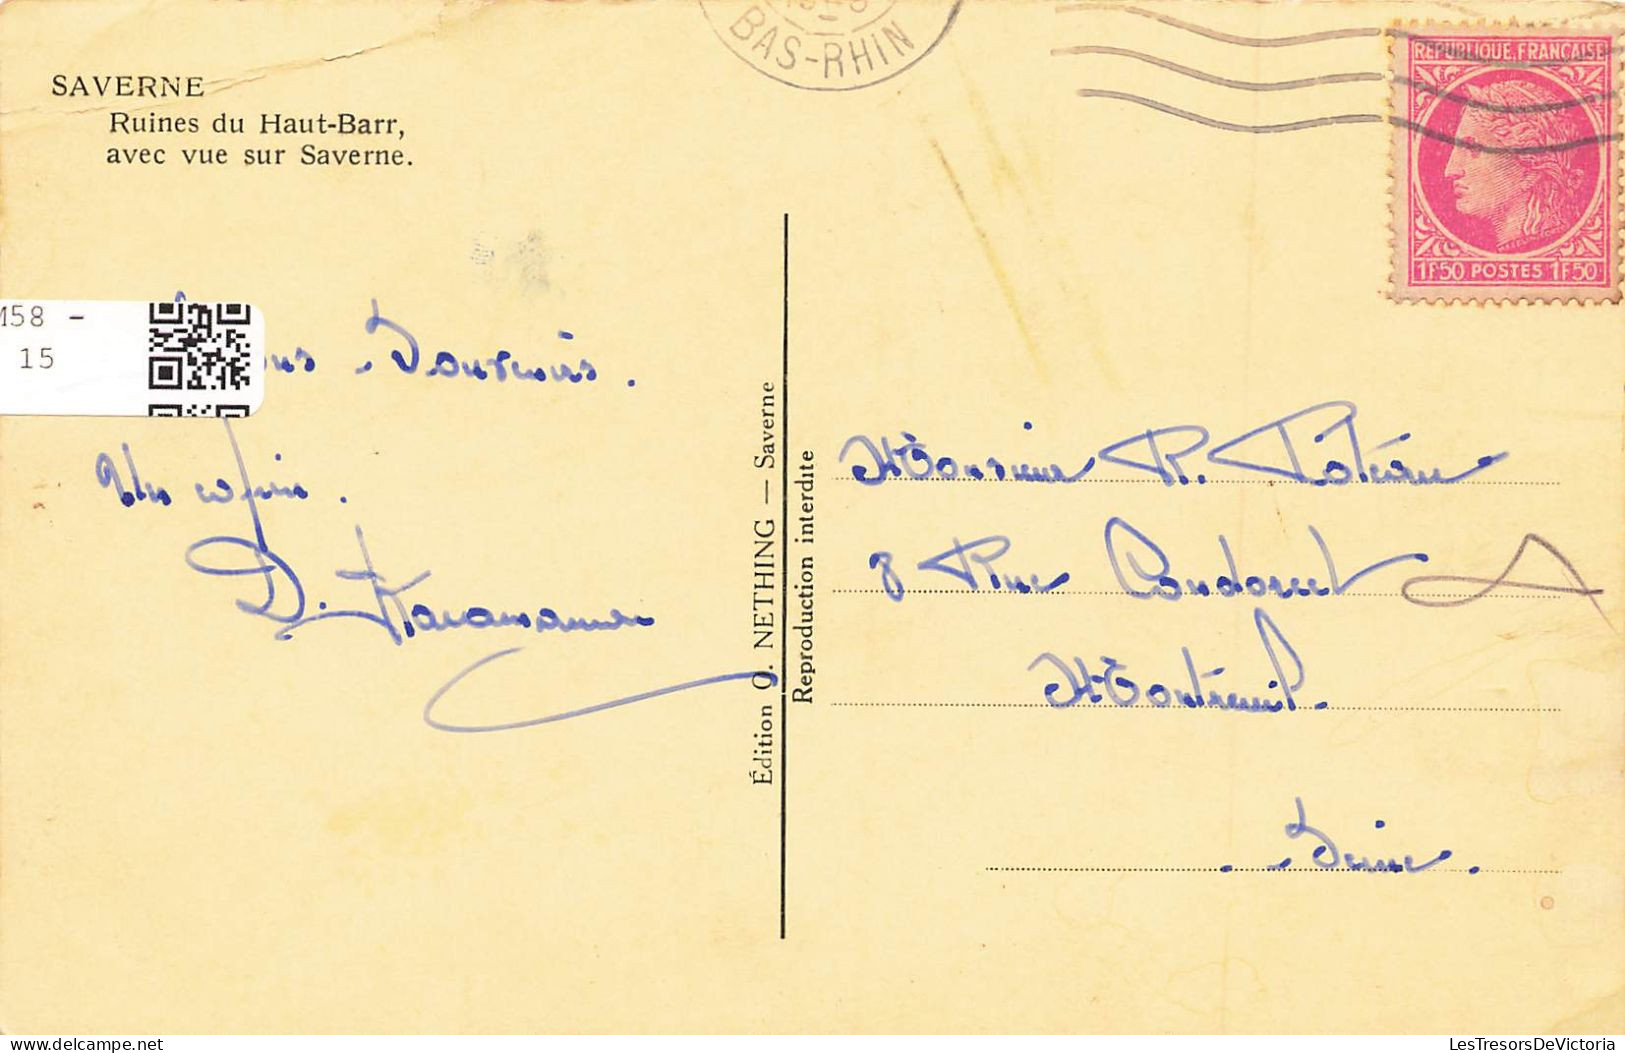 BAS-RHIN
REPUBLIQUE FRANÇAISE
1F50 POSTES 1F50
SAVERNE
Ruines du Haut-Barr,
avec vue sur Saverne.
M58 -
15
Souvenirs.
Un copain.
D.
Édition Q. NETHING — Saverne
Reproduction interdite
Monsieur R.
8 Rue Condorcet
Montreuil.
Seine.
delcampe.net
LesTresorsDeVictoria